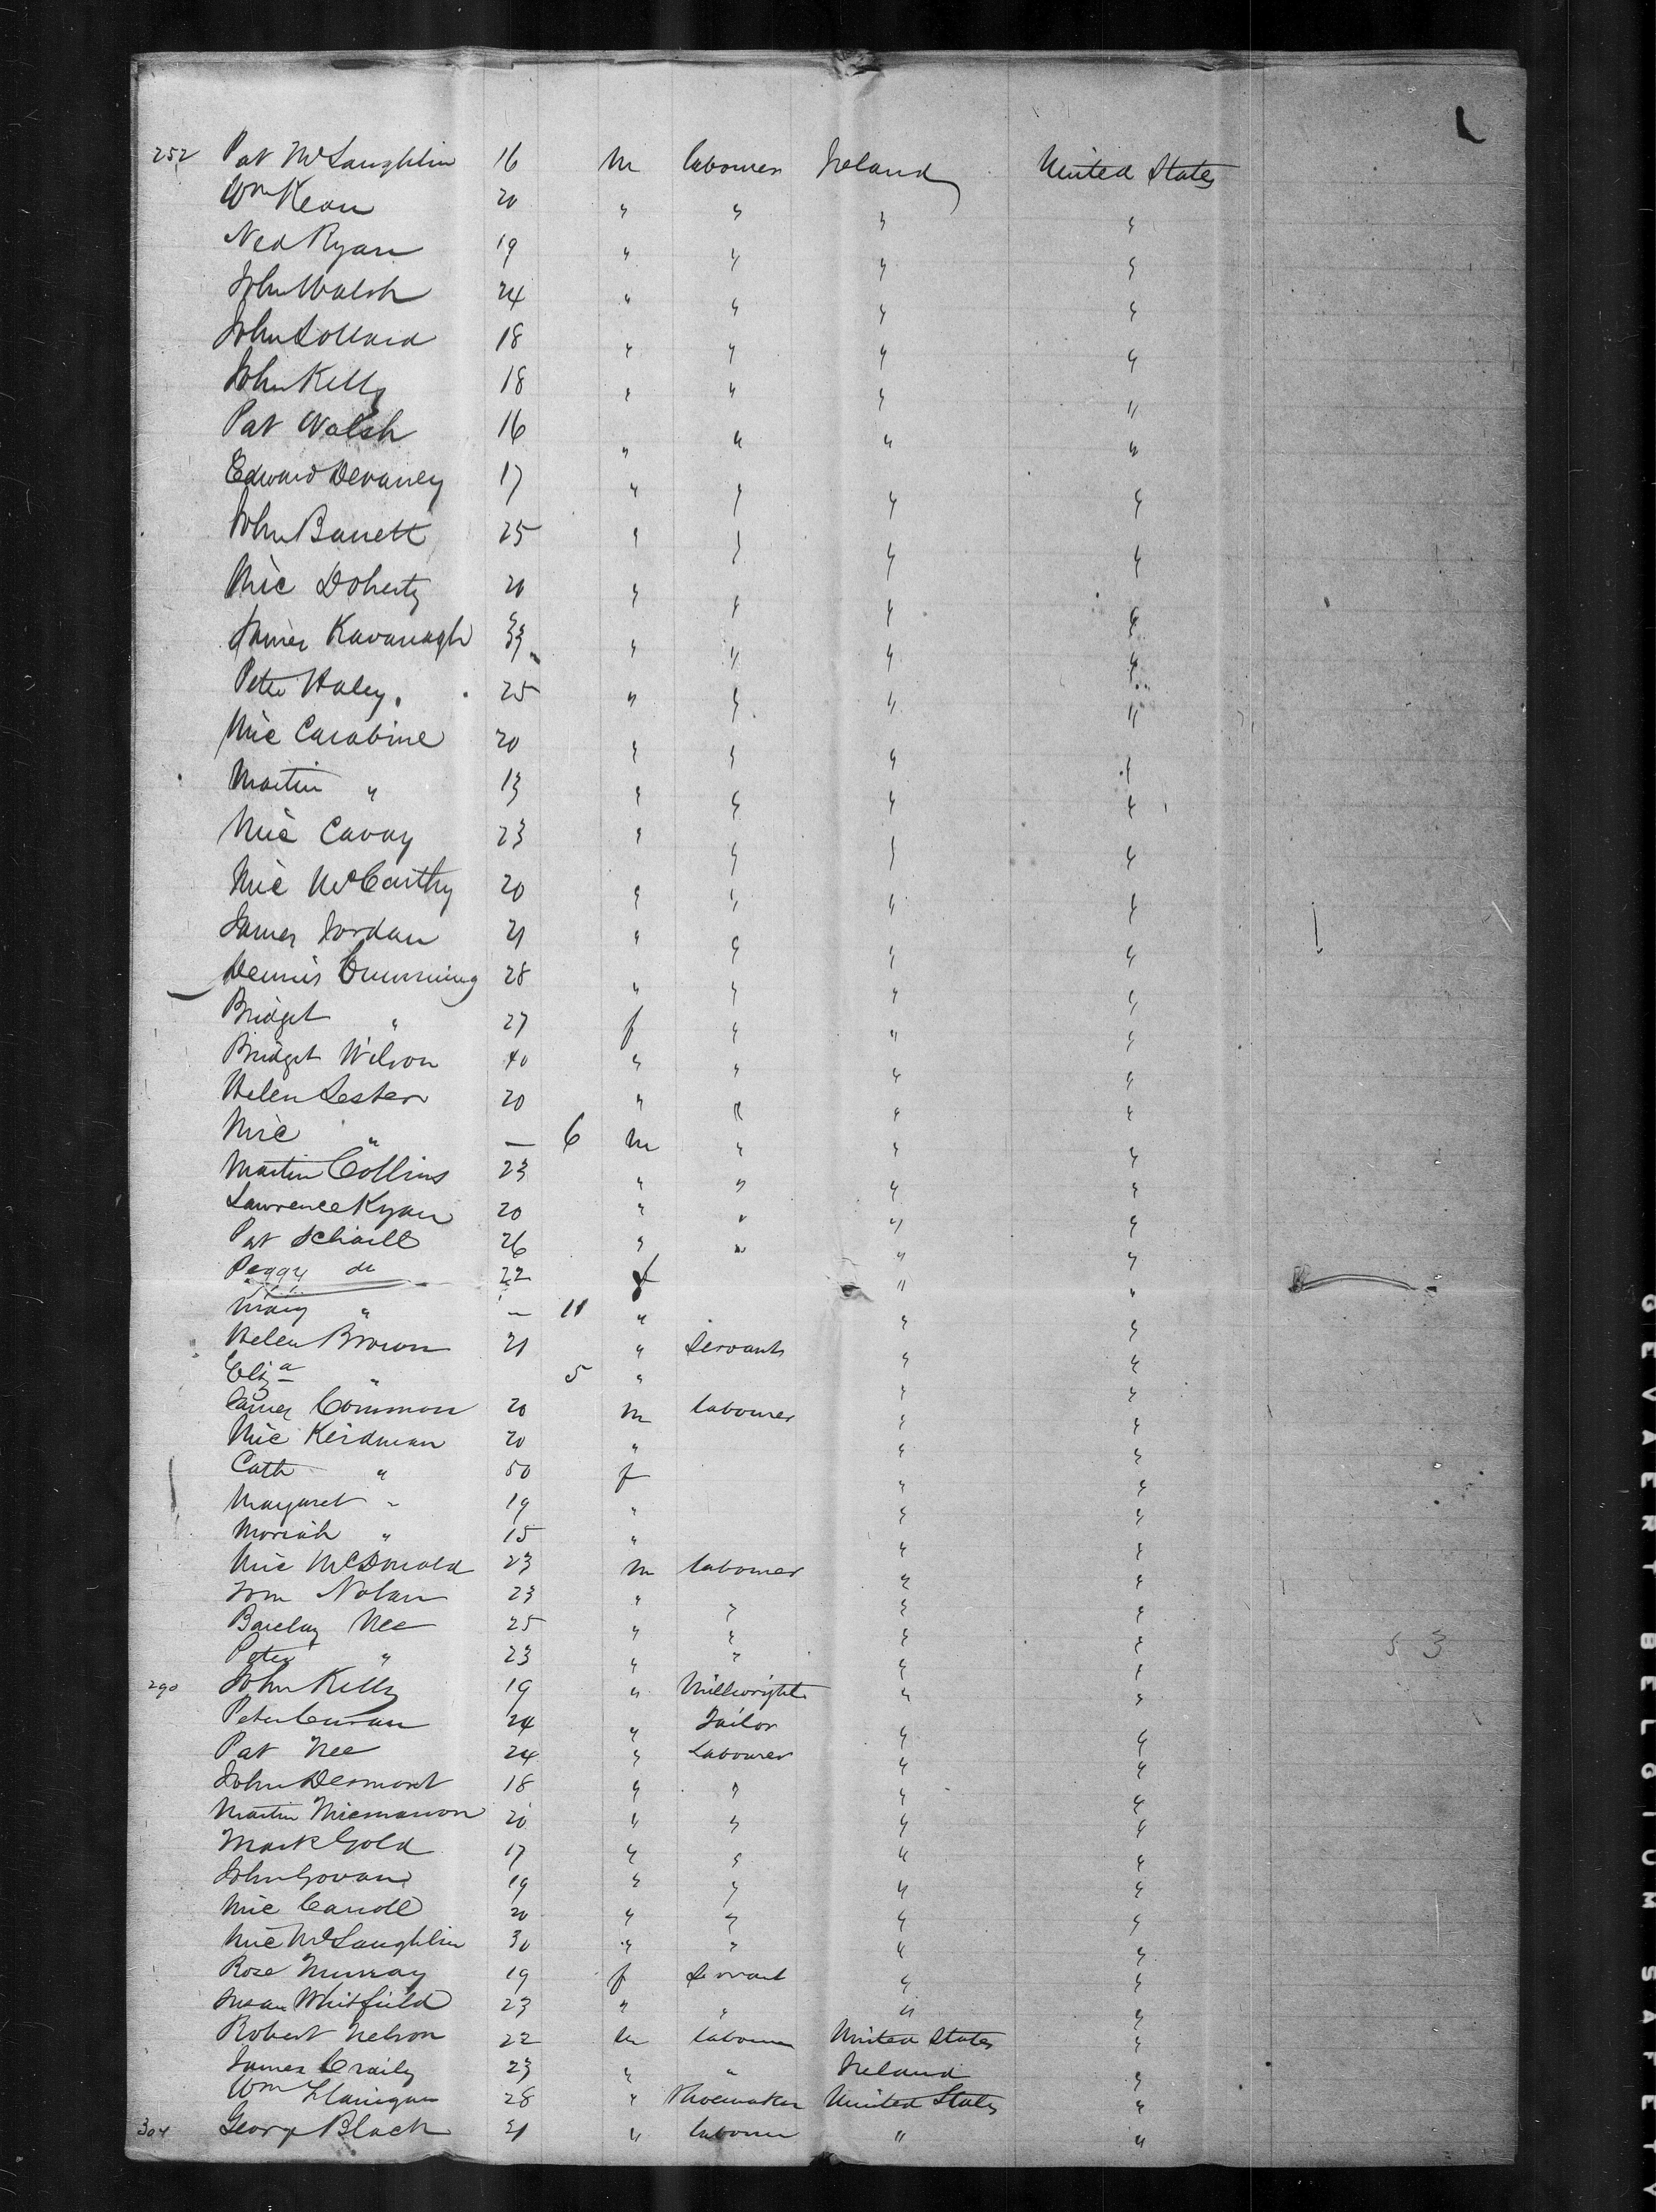 252 Pat McLaughlin 16 m labourer Ireland United States
Wm Kean 20 " " " "
Ned Ryan 19 " " " "
John Walsh 24 " " " "
John 18 " " " "
John Kelly 18 " " " "
Pat Walsh 16 " " " "
Edward Devaney 17 " " " "
John Barrett 25 " " " "
Mic Doherty 20 " " " "
James Kavanagh " " " "
Peter Haley 25 " " " "
Mic Carabine 20 " " " "
Martin " 13 " " " "
Mic Cavay 23 " " " "
Mic McCarthy 20 " " " "
James Jordan 21 " " " "
Dennis 28 " " " "
Bridget " 27 f " " "
Bridget Wilson 40 " " " "
Helen Lester 20 " " " "
Mic " — 6 m " " "
Martin Collins 23 " " " "
Lawrence Ryan 20 " " " "
Pat 26 " " " "
Peggy do 22 f " "
Mary " — 11 " " "
Helen Brown 21 " Servants " "
Eliza " 5 " " "
James Common 20 m labourer " "
Mic Keirdman 20 " " "
Cath " 50 f " "
Margaret " 19 " " "
Moriah " 15 " " "
Mic McDonald 23 m labourer " "
Tom Nolan 23 " " " "
Barclay Nee 25 " " " "
Peter " 23 " " " "
290 John Kelly 19 " Millwright " "
Peter Curran 24 " Tailor " "
Pat Nee 24 " Labourer " "
John Desmont 18 " " " "
Martin 20 " " " "
Mark Gold 17 " " " "
John Govan 19 " " " "
Mic Carroll 20 " " " "
Mic McLaughlin 30 " " " "
Rose Murray 19 f Servant " "
Susan Whitfield 23 " " " "
Robert Nelson 22 m labourer United States "
James Craily 23 " " Ireland "
Wm Flanigan 28 " Shoemaker United States "
304 George Black 21 " labourer " "
GEVAERT BELGIUM SAFETY